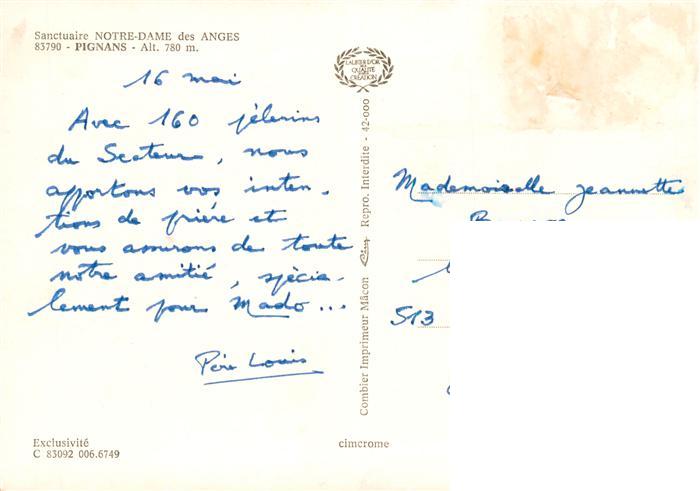 Sanctuaire NOTRE-DAME des ANGES
83790 - PIGNANS - Alt. 780 m.
16 mai
Avec 160 pèlerins
du Secteur, nous
apportons vos inten-
tions de prière et
vous assurons de toute
notre amitié, spécia-
lement pour Mado...
Père Louis
Exclusivité
C 83092 006.6749
LAURIER D'OR
DE LA
QUALITÉ
CRÉATION
Combier Imprimeur Mâcon Cim Repro. Interdite - 42-000
cimcrome
Mademoiselle Jeannette
513